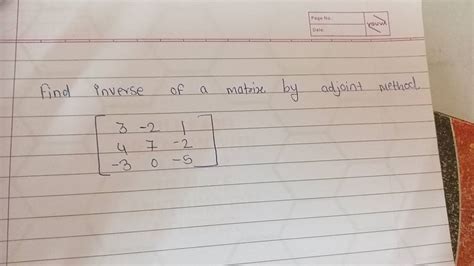 Page No.
Date
Find inverse of a matrix by adjoint method
3 -2 1
4 7 -2
-3 0 -5